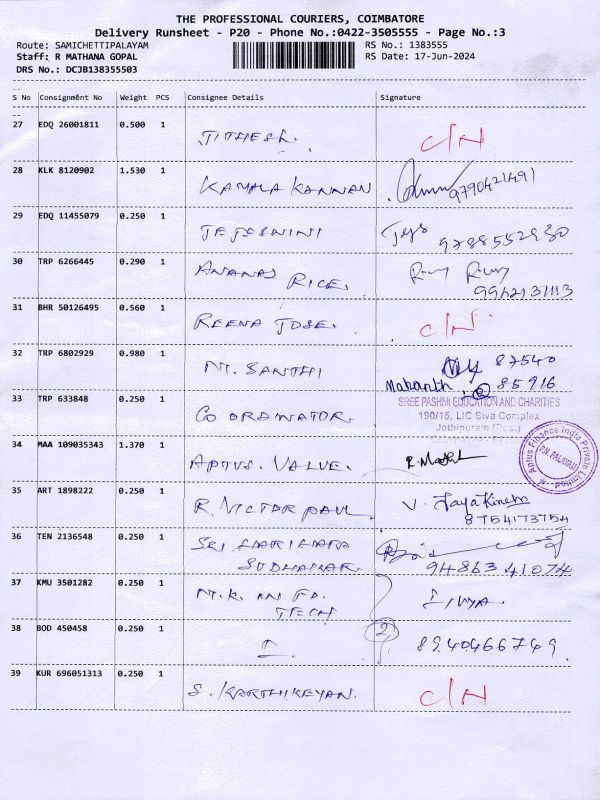 THE PROFESSIONAL COURIERS, COIMBATORE
Delivery Runsheet - P20 - Phone No.:0422-3505555 - Page No.:3
Route: SAMICHETTIPALAYAM
RS No.: 1383555
Staff: R MATHANA GOPAL
RS Date: 17-Jun-2024
DRS No.: DCJB138355503
S No Consignment No Weight PCS Consignee Details Signature
27 EDQ 26001811 0.500 1 JITHESH. C/N
28 KLK 8120902 1.530 1 KAMALA KANNAN 9790421491
29 EDQ 11455079 0.250 1 TEJESWINI Tejs
30 TRP 6266445 0.290 1 ANANAS RICE.
31 BHR 50126495 0.560 1 REENA JOSE. C/N
32 TRP 6802929 0.980 1 M. SANTHI 87540
85916
33 TRP 633848 0.250 1 CO ORDINATOR.
SREE PASHMI EDUCATION AND CHARITIES
190/15, LIC Siva Complex
Jothipuram (Post)
34 MAA 109035343 1.370 1 APTUS. VALUE.
Aptus Finance India Private Limited
P.N. PALAYAM
35 ART 1898222 0.250 1 R. VICTOR PAUL V.
8754173754
36 TEN 2136548 0.250 1 SRI HARIHARA
SUDHAKAR. 94863 41074
37 KMU 3501282 0.250 1 M.K.
TECH
38 BOD 450458 0.250 1 2 8940466749.
39 KUR 696051313 0.250 1 S. KARTHIKEYAN. C/N